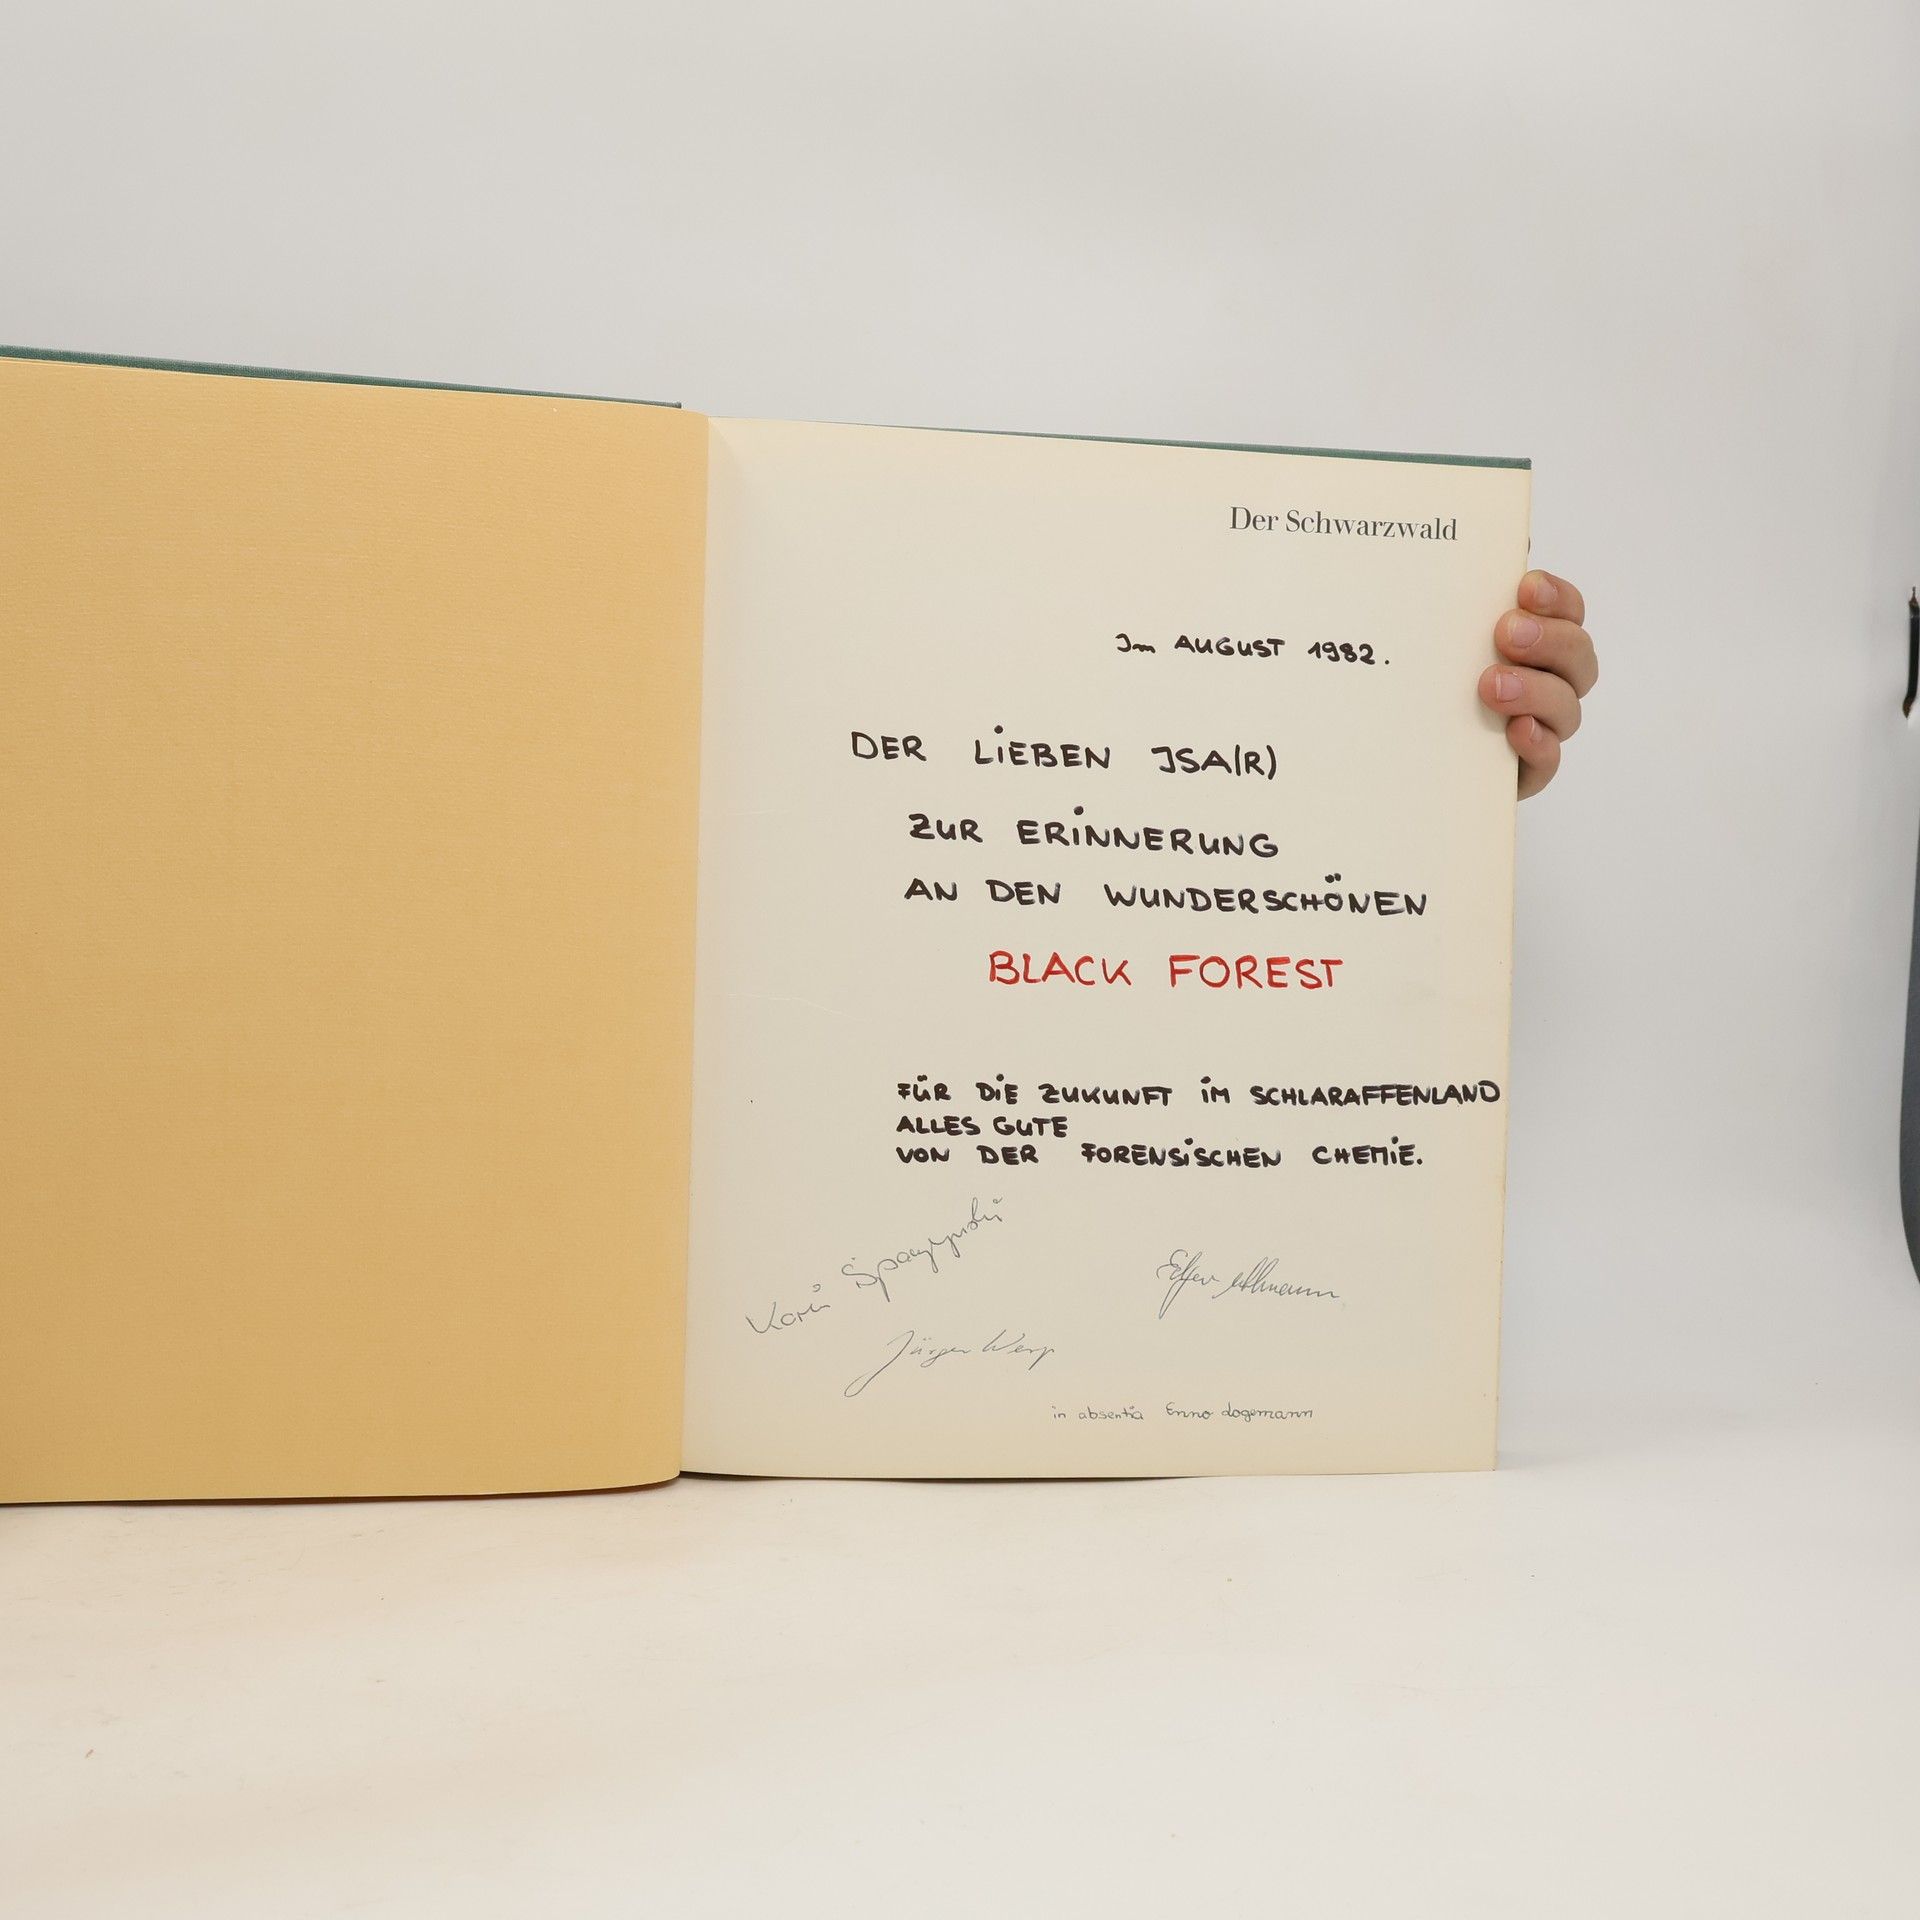 Der Schwarzwald
Im AUGUST 1982.
DER LIEBEN ISA(R)
ZUR ERINNERUNG
AN DEN WUNDERSCHÖNEN
BLACK FOREST
FÜR DIE ZUKUNFT IM SCHLARAFFENLAND
ALLES GUTE
VON DER FORENSISCHEN CHEMIE.
Jürgen Werp
in absentia Enno Logemann